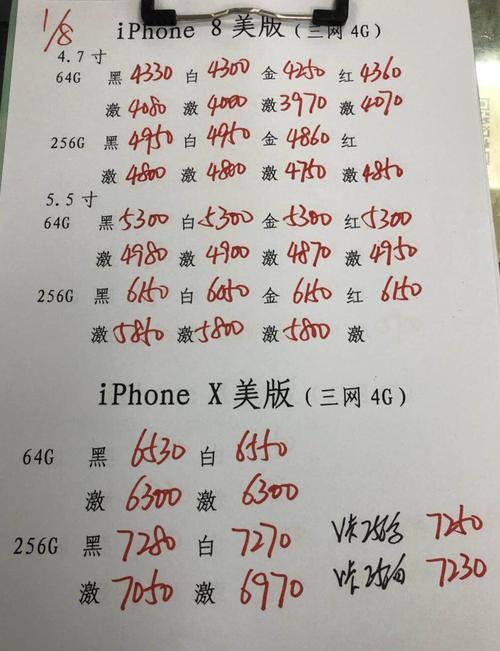 1/8
iPhone 8美版(三网4G)
4.7寸
64G 黑4330 白4300 金4250 红4360
激4080 激4000 激3970 激4070
256G 黑4950 白4950 金4860 红
激4800 激4800 激4750 激4850
5.5寸
64G 黑5300 白5300 金5300 红5300
激4980 激4900 激4870 激4950
256G 黑6150 白6050 金6150 红6150
激5850 激5800 激5800 激
iPhone X美版(三网4G)
64G 黑6530 白6550
激6300 激6300
256G 黑7280 白7270 256 7250
激7050 激6970 256白 7230